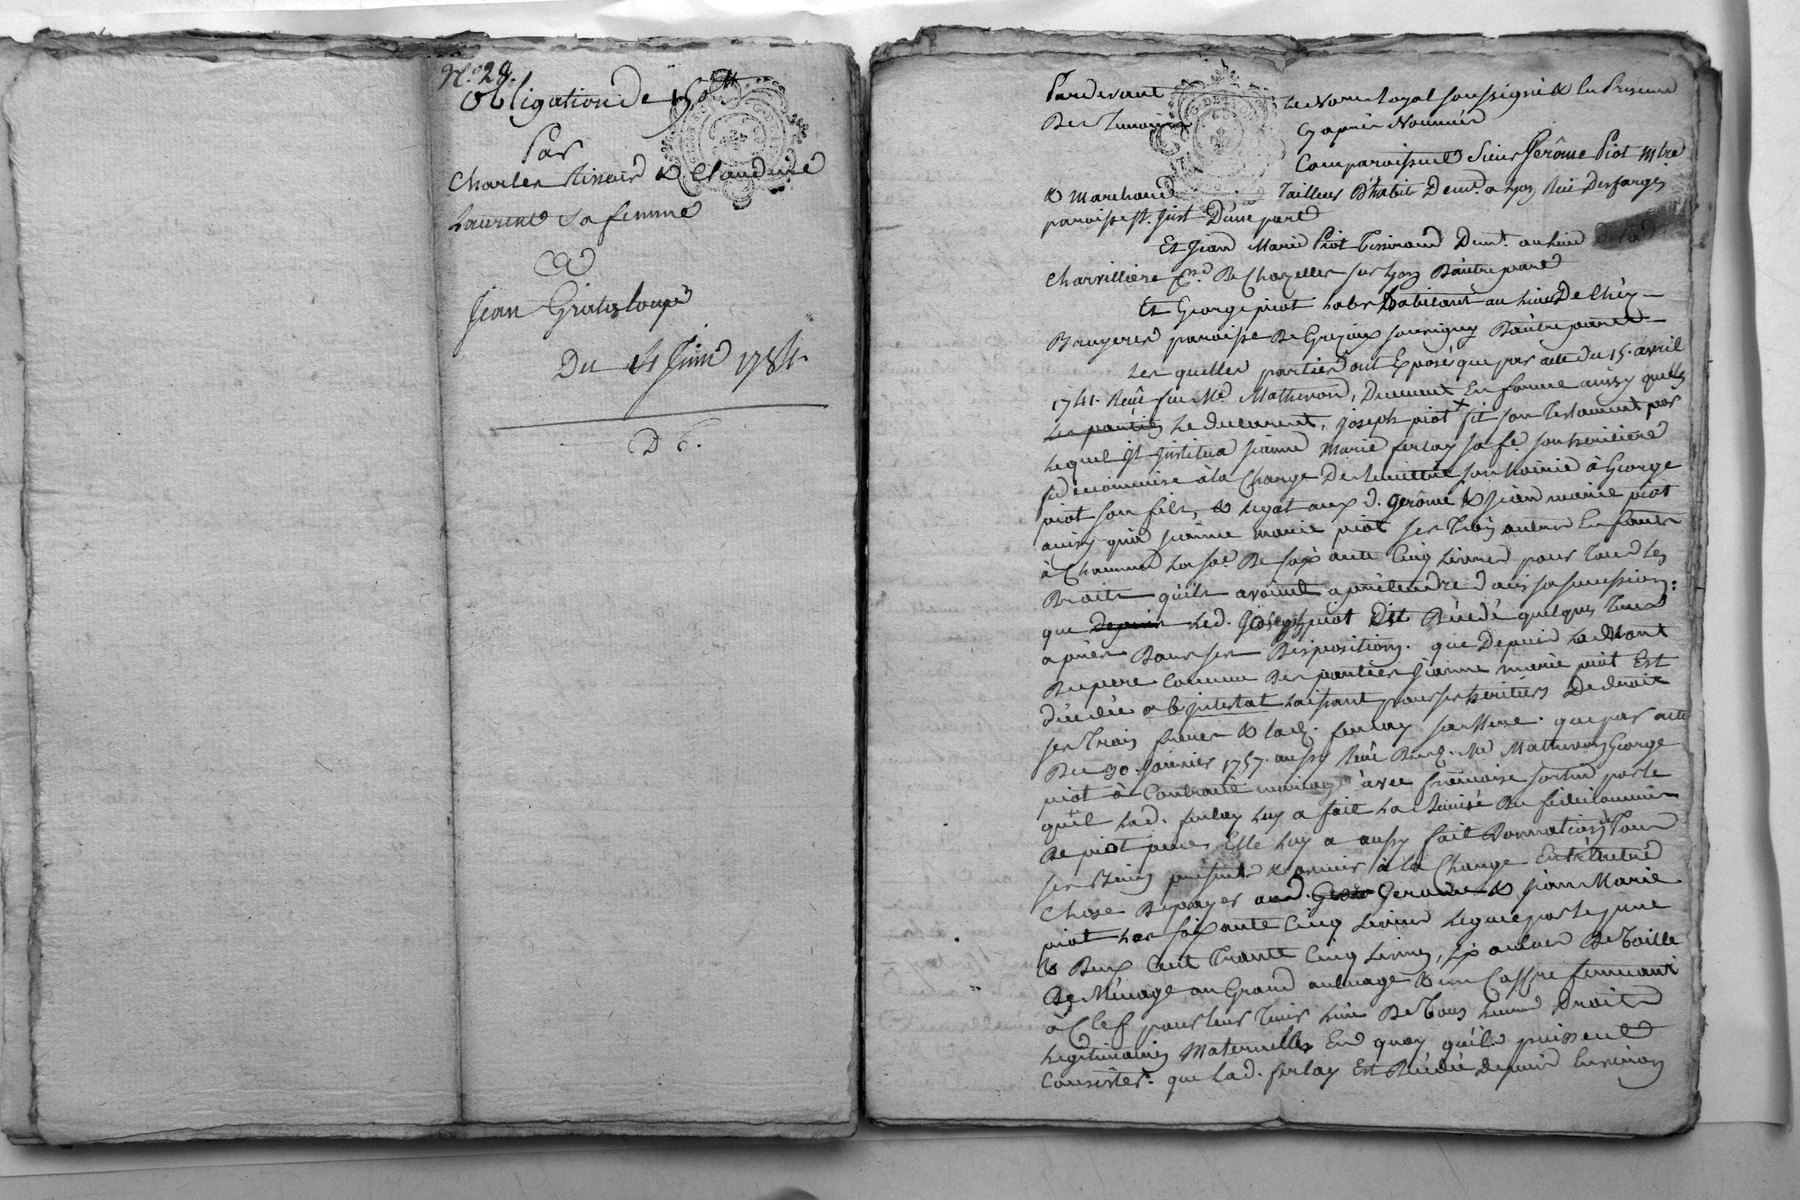 N.° 29.
Obligation de 150 ₶
Par
Charles & Claudine
Laurent Sa femme
A
Jean Grataloup
Du 4 Juin 1784.
D 6.
Pardevant Le Notaire Royal Soussigné & En Presence
Des Temoins Cy après Nommés
Comparoissent Sieur Jerôme Piot Mtre
& Marchand Tailleur D'habit Demt. a Lyon Rüe Desfarges
paroisse St. Just D'une part
Et Jean Marie Piot Tisserand Demt. au Lieu
Charvilliere De Chazelles sur Lyon D'autre part
Et George piot habitant au Lieu De Chéz
Bruyeres paroisse De Grezieux Souvigny D'autre part
Lesquelles parties ont Exposé que par acte du 15. avril
1741. Reçû par Me. Mathevon, Duement En forme ainsy quelles
Les parties Le Declarent, Joseph piot fit son Testament par
Lequel Il Institua Jeanne Marie ferlay sa fe. son heritiere
fideicommise à la Charge De Remettre son hoirie à George
piot son fils, & Legat aux d. Gerôme & Jean marie piot
ainsy qu'à Jeanne marie piot ses Trois autres Enfants
à Chacun La So.e De soixante Cinq Livres pour Tous Les
Droits qu'ils avoient a pretendre dans sa succession:
que Depuis Led. Joseph piot Est Décédé quelques Tems
apres Dans ses Dispositions. que Depuis La Mort
Du pere Commun Des parties Jeanne marie piot Est
décédée ab intestat Laissant pour ses heritiers De droit
ses Trois freres & lad. ferlay sa Mere. que par acte
Du 30. Janvier 1757. aussy Reçû Dud. Me Mathevon George
piot à Contracté mariage avec françoise
qu'il Lad. ferlay Luy a fait La Remise Du fideicommis
De piot pere, Elle Luy a aussy fait Donnation de Tous
ses Biens presents & avenir à la Charge Entr'autre
Chose De payer aud. Gerôme & Jean Marie
piot Les soixante Cinq Livres Legué par Le pere
& Deux Cent Trante Cinq Livres, six aulnes De Toille
De Ménage au Grand aulnage & un Coffre fermant
à Clef pour leur Tenir Lieu De Tous Leurs Droits
Legitimaires Maternelles En quoy qu'ils puissent
Consister. que Lad. ferlay Est Décédée Depuis Environ